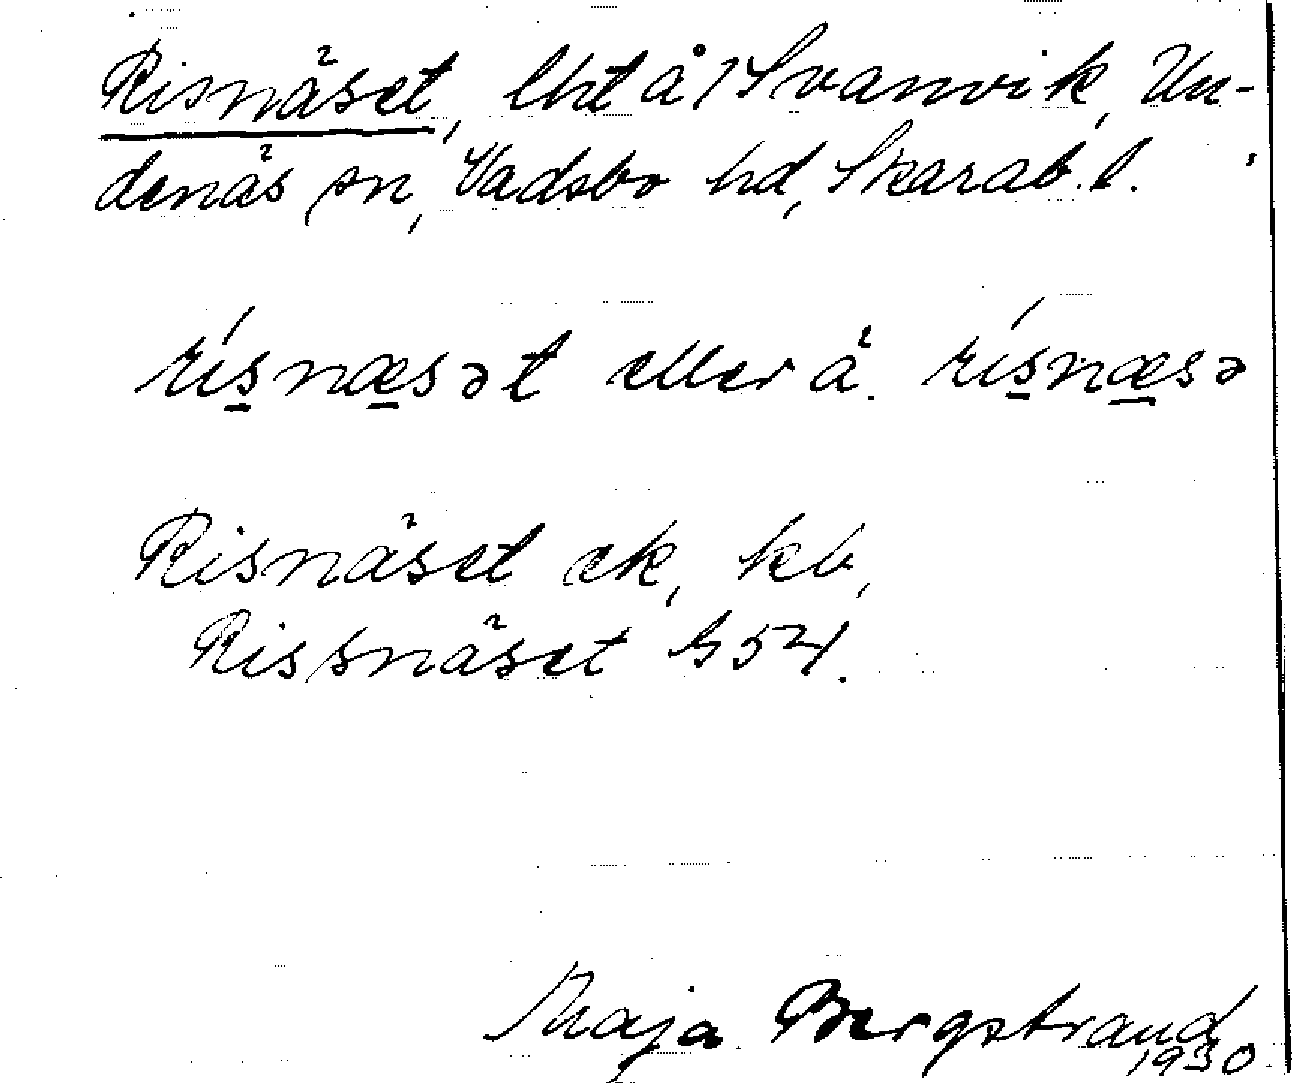 Risnäset, lht å 1 Svanvik, Un-
denäs sn, Vadsbo hd, Skarab. l.
rísnæsət eller å rísnæsə
Risnäset ek, kb,
Rissnäset G 54.
Maja Bergstrand
1930